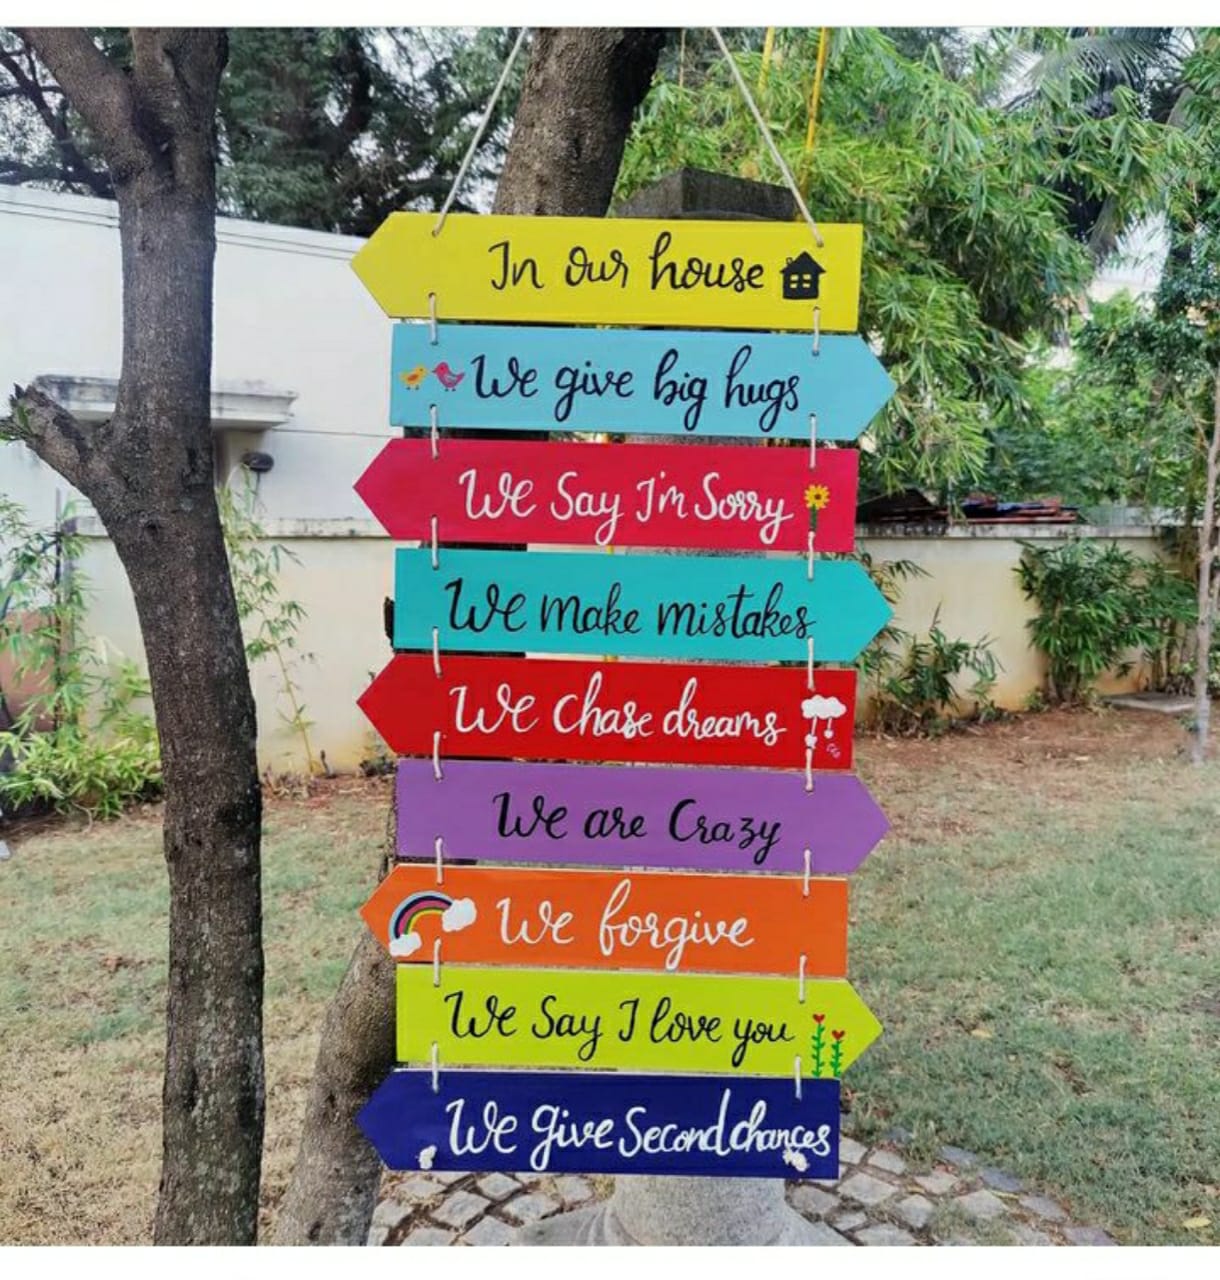 In our house
We give big hugs
We Say I'm Sorry
We make mistakes
We chase dreams
We are Crazy
We forgive
We Say I love you
We give Second chances